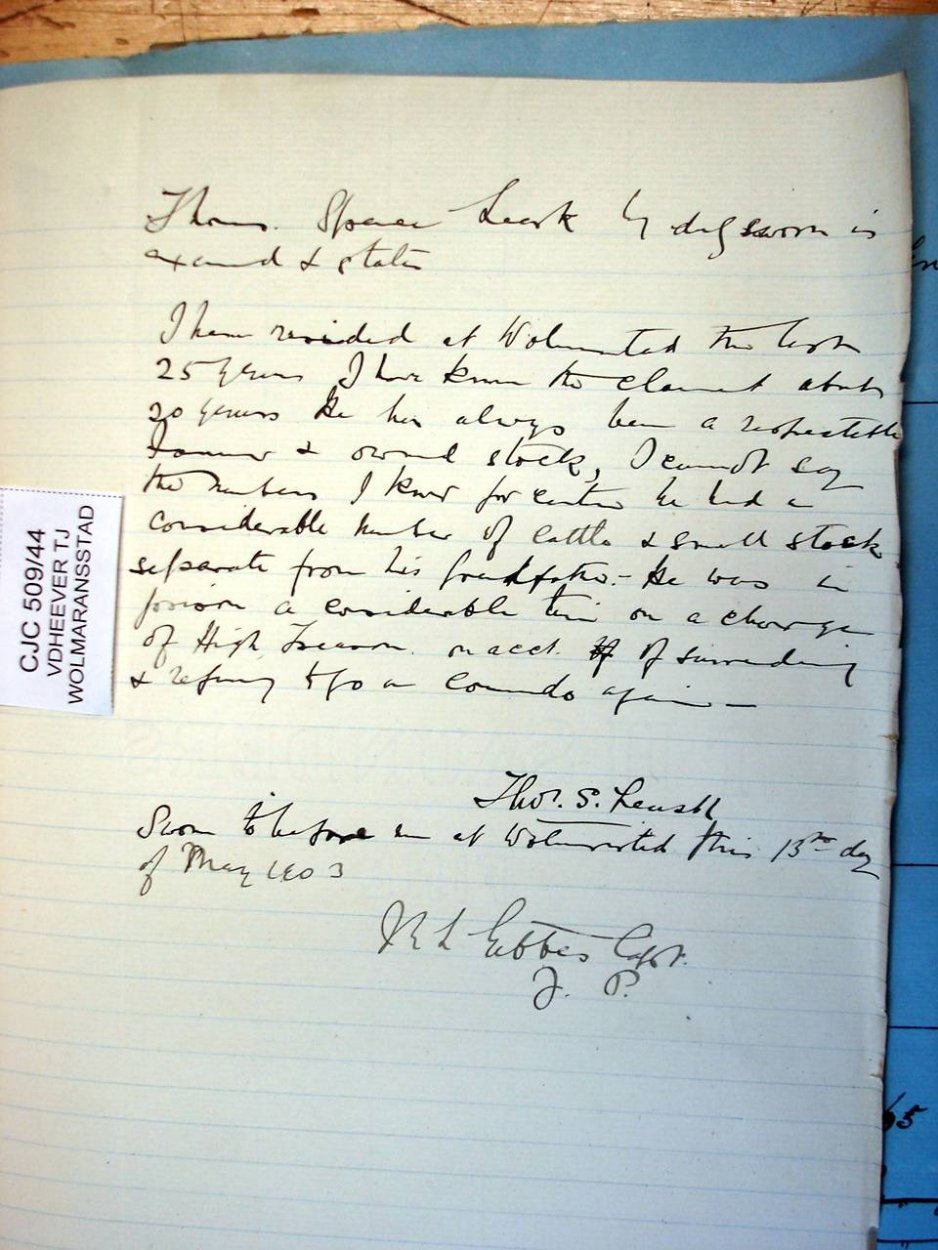 Thomas Spence Leask by duly sworn is
examd & states
I have resided at Wolmarstad the last
25 years I have known the claimant about
20 years He has always been a respectable
Farmer & owned stock, I cannot say
the numbers I know for certain he had a
considerable number of cattle & small stock
separate from his grandfather - He was in
prison a considerable time on a charge
of High Treason on acct. of surrendering
& refusing to go on Commando again —
Thos. S. Leask
Sworn to before me at Wolmarstad this 13th day
of May 1903
Gibbes Capt.
J. P.
CJC 509/44
VDHEEVER TJ
WOLMARANSSTAD
65